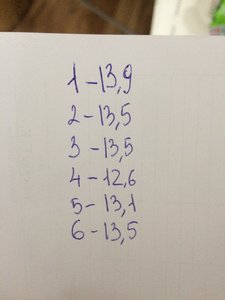 1 – 13,9
2 – 13,5
3 – 13,5
4 – 12,6
5 – 13,1
6 – 13,5